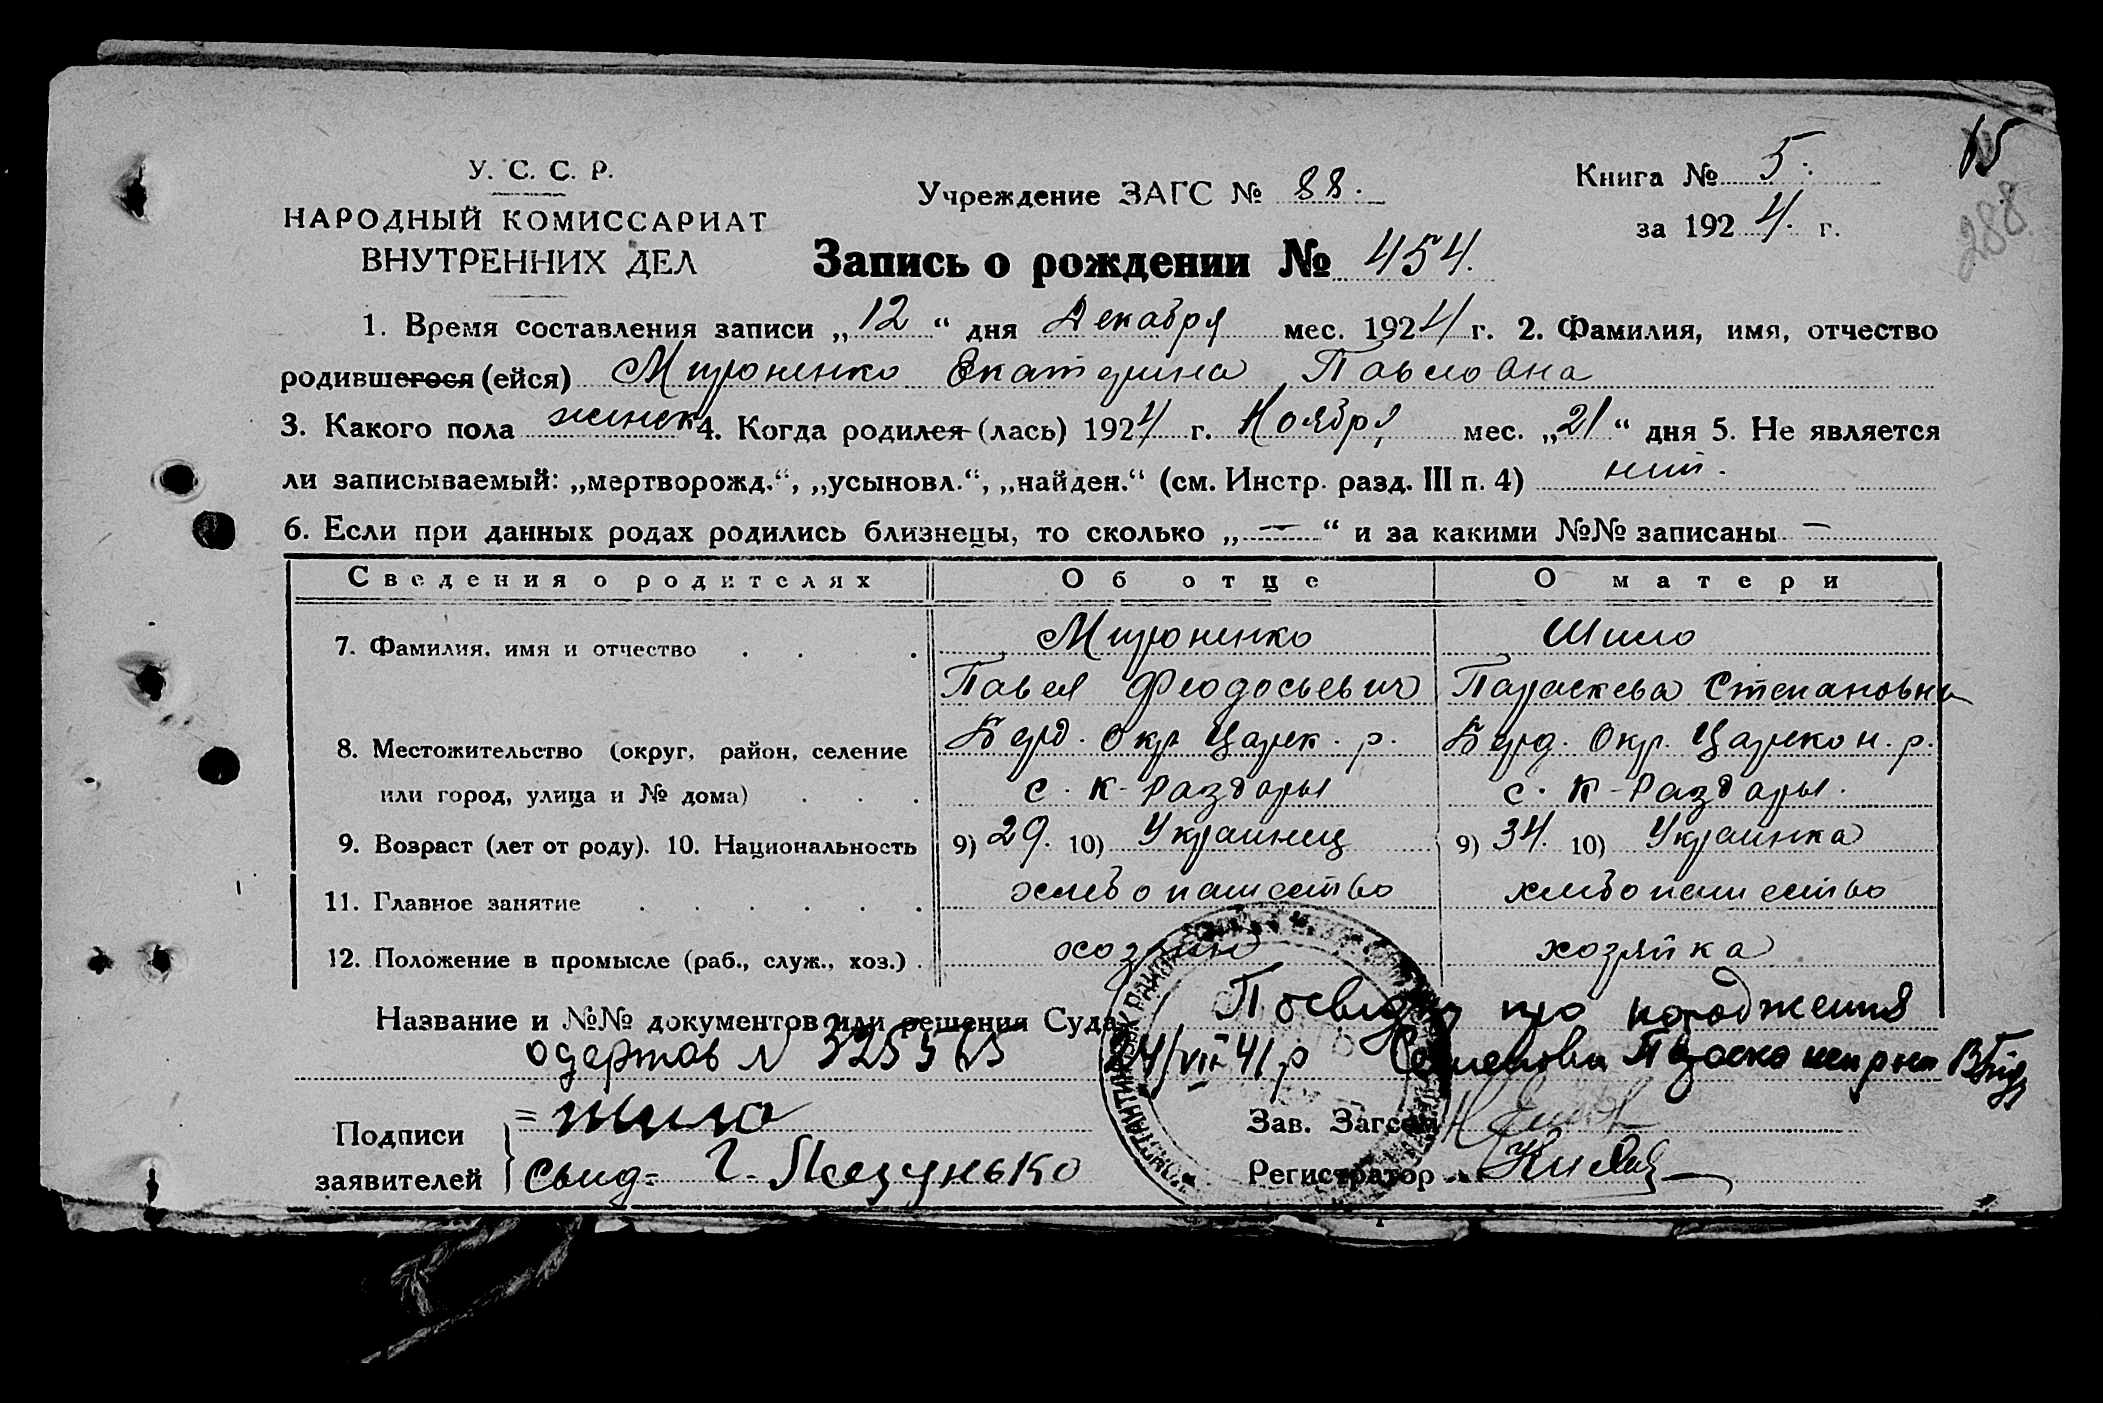 15
288
У. С. С. Р.
НАРОДНЫЙ КОМИССАРИАТ
ВНУТРЕННИХ ДЕЛ
Учреждение ЗАГС № 88.
Книга № 5.
за 1924. г.
Запись о рождении № 454.
1. Время составления записи „12“ дня Декабря мес. 1924 г. 2. Фамилия, имя, отчество
родившегося (ейся) Мироненко Екатерина Павловна
3. Какого пола женск 4. Когда родился (лась) 1924 г. Ноября мес. „21“ дня 5. Не является
ли записываемый: „мертворожд.“, „усыновл.“, „найден.“ (см. Инстр. разд. III п. 4) нет.
6. Если при данных родах родились близнецы, то сколько „—“ и за какими №№ записаны —
Сведения о родителях Об отце О матери
7. Фамилия, имя и отчество Мироненко Шило
Павел Феодосьевич Параскева Степановна
8. Местожительство (округ, район, селение Берд. Окр. Царек. р. Берд. Окр. Царекон. р.
или город, улица и № дома) с. К-Раздоры с. К-Раздоры.
9. Возраст (лет от роду). 10. Национальность 9) 29. 10) Украинец 9) 34. 10) Украинка
11. Главное занятие хлебопашество хлебопашество
12. Положение в промысле (раб., служ., хоз.) хозяин хозяйка
Название и №№ документов или решения Суда Посвідку про народження
одержав N 24/VII 41 р
Подписи
заявителей
= Шило
Свид=
Зав. Загсом
Регистратор